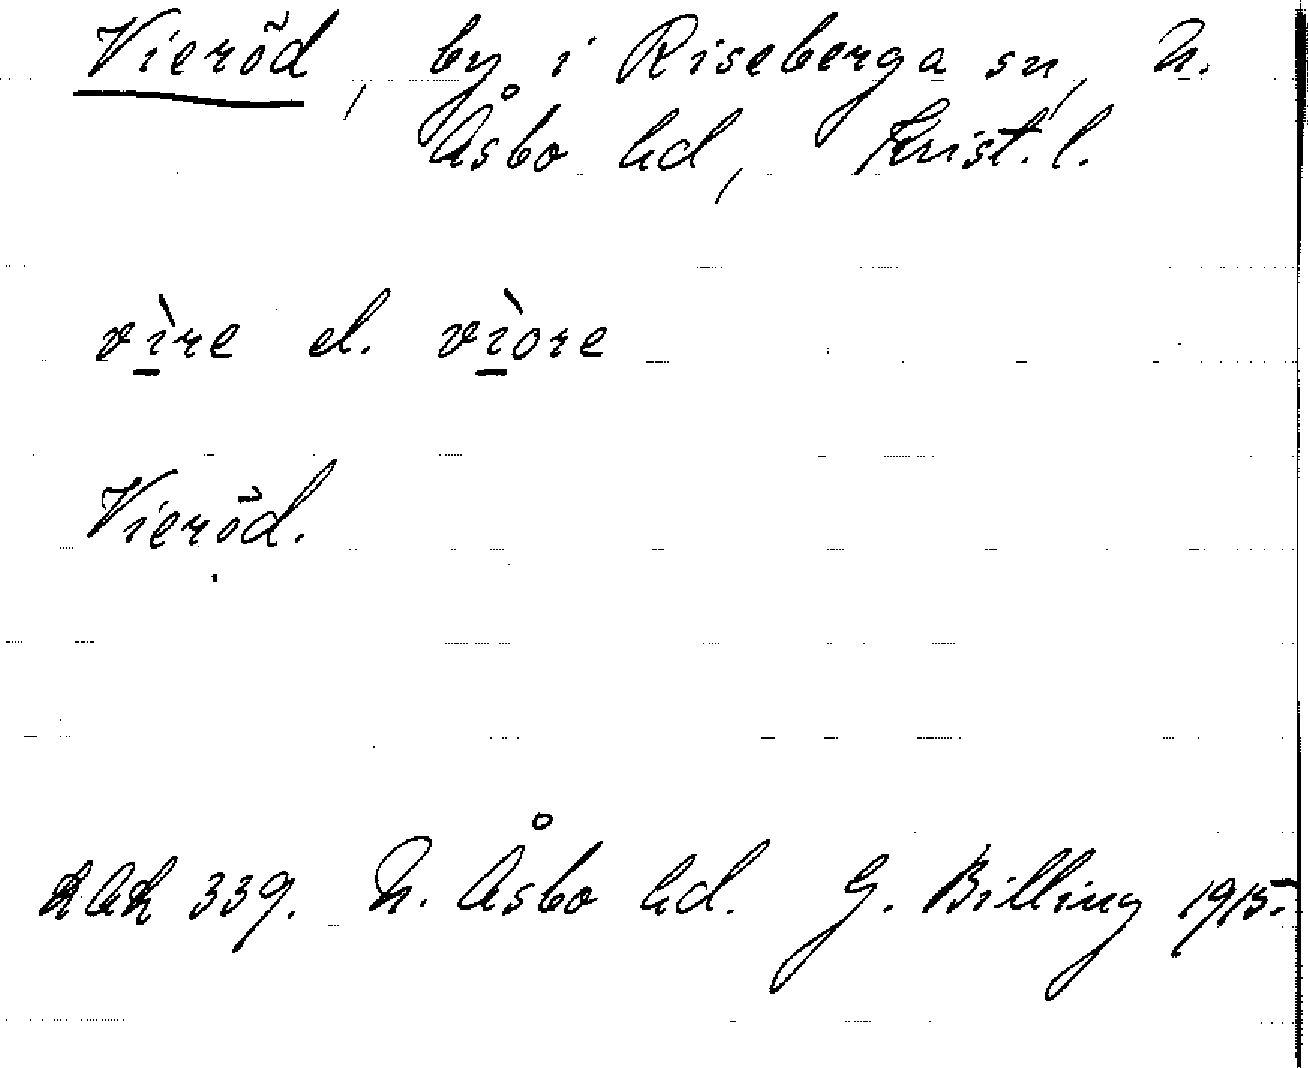 Vieröd, by i Riseberga sn, N.
Åsbo hd, Krist. l.
vìre el. vìore
Vieröd.
RAÄ 339. N. Åsbo hd. G. Billing 1915.